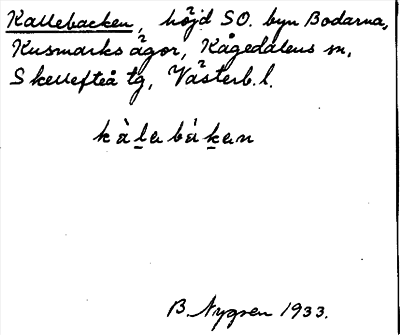 Kallebacken, höjd SO. byn Bodarna,
Kusmarks ägor, Kågedalens sn,
Skellefteå tg, Västerb. l.
kàlabákan
B. Nygren 1933.